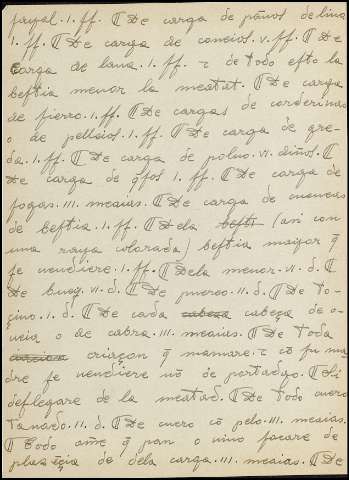 sayal .I. ff. ⁋ De carga de paños de lino
.I. ff. ⁋ De carga de coneios .V. ff. ⁋ De
carga de lana .I. ff. z de todo esto la
bestia menor la meatat. ⁋ De carga
de fierro .I. ff. ⁋ De cargas de corderinas
o de pelleios .I. ff. ⁋ De carga de gre-
da .I. ff. ⁋ De carga de poluo .VI. diños. ⁋
De carga de q̃sos I. ff. ⁋ De carga de
fogas .III. meaias. ⁋ De carga de cuencas
de bestia .I. ff. ⁋ Dela besti (asi con
una raya colorada) bestia maior q̃
se uendiere .I. ff. ⁋ Dela menor .VI. d. ⁋
De buey .VI. d. ⁋ De puerco .II. d. ⁋ De to-
çino .I. d. ⁋ De cada cabeza cabeça de o-
ueia o de cabra .III. meaias. ⁋ De toda
criarçon q̃ mamare z cõ su ma
dre se uendiere nõ de portadgo. ⁋ Si
desllegare de la meatad. ⁋ De todo cuero
tanado .II. d. ⁋ De cuero cõ pelo .III. meaias.
⁋ Todo om̃e q̃ pan o uino sacare de
de dela carga .III. meaias. ⁋ De